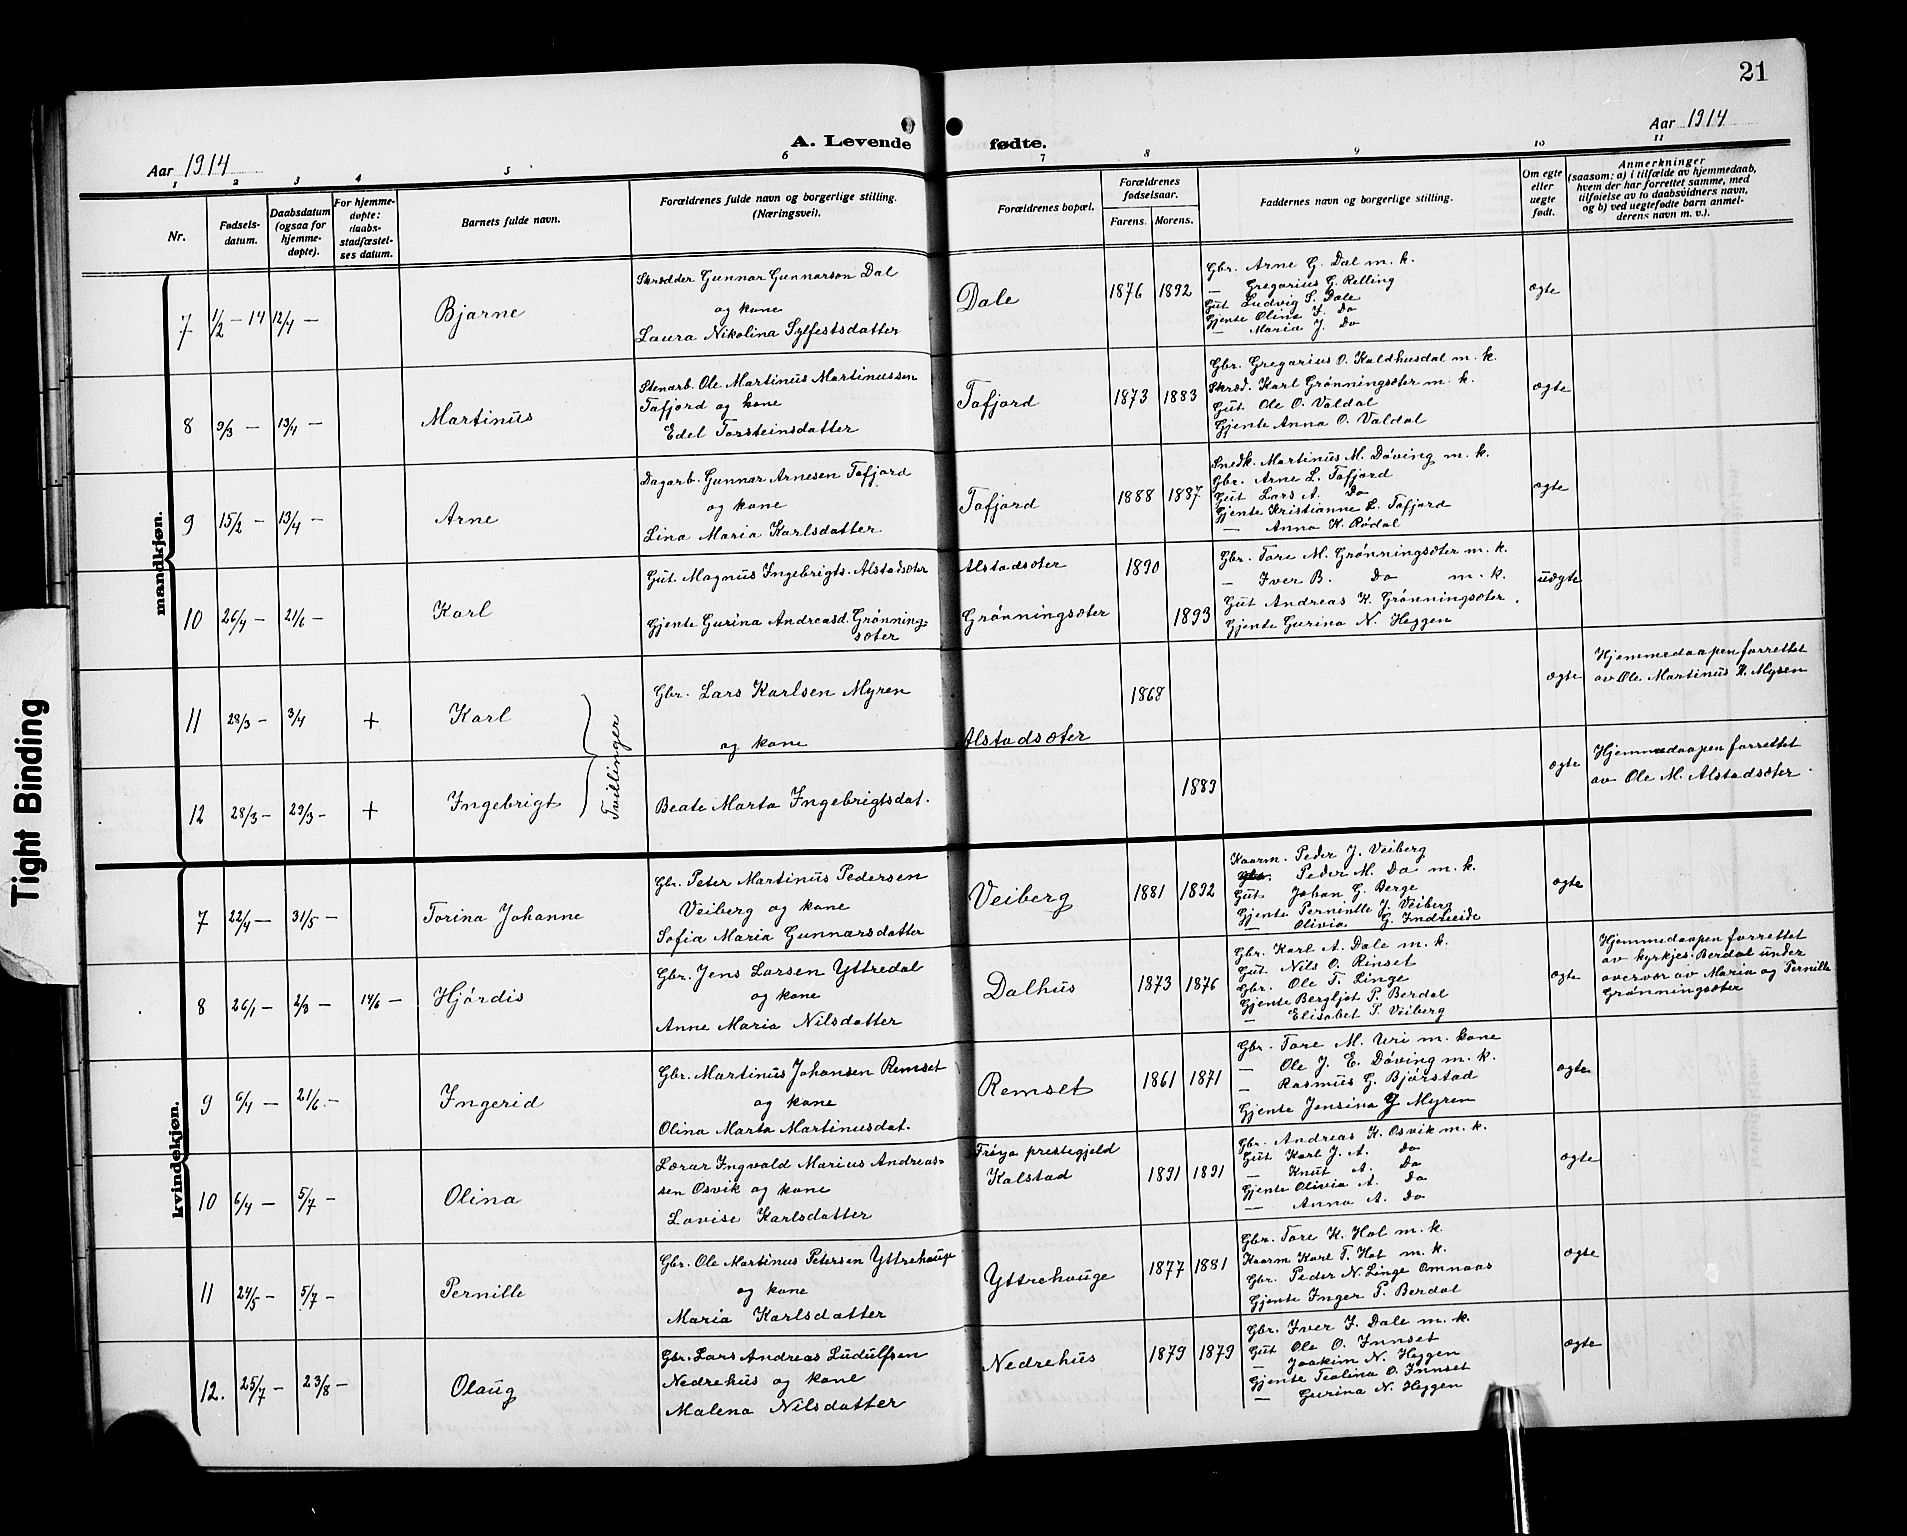 21
Aar 1914
A. Levende fødte.
Aar 1914
1 2 3 4 5 6 7 8 9 10 11
Nr.
Fødsels-
datum.
Daabsdatum
(ogsaa for
hjemme-
døpte).
For hjemme-
døpte:
daabs-
stadfæstel-
ses datum.
Barnets fulde navn.
Forældrenes fulde navn og borgerlige stilling.
(Næringsvei).
Forældrenes bopæl.
Forældrenes
fødselsaar.
Farens. Morens.
Faddernes navn og borgerlige stilling.
Om egte
eller
uegte
født.
Anmerkninger
(saasom: a) i tilfælde av hjemmedaab,
hvem der har forrettet samme, med
tilføielse av to daabsvidners navn,
og b) ved uegtefødte barn anmel-
derens navn m. v.).
mandkjøn.
7 1/2 - 14 12/4 - Bjarne
Skrædder Gunnar Gunnarson Dal
og kone
Laura Nikolina Sylfestsdatter
Dale 1876 1892
Gbr. Arne G. Dal m. k.
— Gregarius G. Relling
Gut Ludvig S. Dale
Gjente Oline J. Do
— Maria J. Do
ægte
8 9/3 - 13/4 - Martinus
Stenarb. Ole Martinus Martinussen
Tafjord og kone
Edel Torsteinsdatter
Tafjord 1873 1883
Gbr. Gregarius O. Kaldhusdal m. k.
Skræd. Karl Grønningsæter m. k.
Gut Ole O. Valdal
Gjente Anna O. Valdal
ægte
9 15/2 - 13/4 - Arne
Dagarb. Gunnar Arnesen Tafjord
og kone
Lina Maria Karlsdatter
Tafjord 1888 1887
Snedk. Martinus M. Døving m. k.
Gbr. Arne L. Tafjord
Gut Lars A. Do
Gjente Kristianne L. Tafjord
— Anna K. Rødal
ægte
10 26/4 - 21/6 - Karl
Gut. Magnus Ingebrigts. Alstadsæter
Gjente Gurina Andreasd. Grønning-
sæter
Alstadsæter 1890
Grønningsæter 1893
Gbr. Tore M. Grønningsæter m. k.
— Iver B. Do m. k.
Gut Andreas K. Grønningsæter.
Gjente Gurina N. Heggen
uægte
11 28/3 - 3/4 + Karl
Tvillinger
Gbr. Lars Karlsen Myren
og kone
Alstadsæter 1868
ægte
Hjemmedaapen forrettet
av Ole Martinus K. Myren
12 28/3 - 29/3 - + Ingebrigt
Beate Marta Ingebrigtsdat.
1889
ægte
Hjemmedaapen forrettet
av Ole M. Alstadsæter.
kvindekjøn.
7 22/4 - 31/5 - Torina Johanne
Gbr. Peter Martinus Pedersen
Veiberg og kone
Sofia Maria Gunnarsdatter
Veiberg 1881 1892
Kaarm. Peder J. Veiberg
Gbr. Peder M. Do m. k.
Gut Johan G. Berge
Gjente Pernille J. Veiberg
— Olivia G. Indreeide
ægte
8 26/1 - 2/3 - 14/6 - Hjørdis
Gbr. Jens Larsen Yttredal
og kone
Anne Maria Nilsdatter
Dalhus 1873 1876
Gbr. Karl A. Dale m. k.
Gut. Nils O. Rinset
Gbr. Ole T. Linge
Gjente Bergljot P. Berdal
— Elisabet P. Veiberg
ægte
Hjemmedaapen forrettet
av kyrkjes. Berdal under
overvær av Maria og Pernille
Grønningsæter
9 6/4 - 21/6 - Ingerid
Gbr. Martinus Johansen Remset
og kone
Olina Marta Martinusdat.
Remset 1861 1871
Gbr. Tore M. Uri m. kone
— Ole J. E. Døving m. k.
— Rasmus G. Bjørstad
Gjente Jensina G Myren
ægte
10 6/4 - 5/7 - Olina
Lærar Ingvald Marius Andreas-
sen Osvik og kone
Lovise Karlsdatter
Frøya prestegjeld
Kalstad 1891 1891
Gbr. Andreas K. Osvik m. k.
Gut Karl J. A. Do
— Knut A. Do
Gjente Olivia A. Do
— Anna A. Do
ægte
11 24/5 - 5/7 - Pernille
Gbr. Ole Martinus Petersen Yttrehauge
og kone
Maria Karlsdatter
Yttrehauge 1877 1881
Gbr. Tore K. Hol m. k.
Kaarm Karl T. Hol m. k.
Gbr. Peder N. Linge Omnaas
Gjente Inger P. Berdal
ægte
12. 25/7 - 23/8 - Olaug
Gbr. Lars Andreas Ludulfsen
Nedrehus og kone
Malena Nilsdatter
Nedrehus 1879 1879
Gbr. Iver I. Dale m. k.
Gut Ole O. Innset
— Joakim N. Heggen
Gjente Teolina O. Innset
— Gurina N. Heggen
ægte
Tight Binding